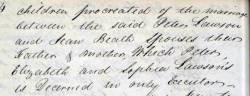 children procreated of the marriage
between the said Peter Lawson
and Jean Beath Spouses their
Father & Mother, Which Peter
Elizabeth and Sophia Lawson's
is Decerned as only Executors